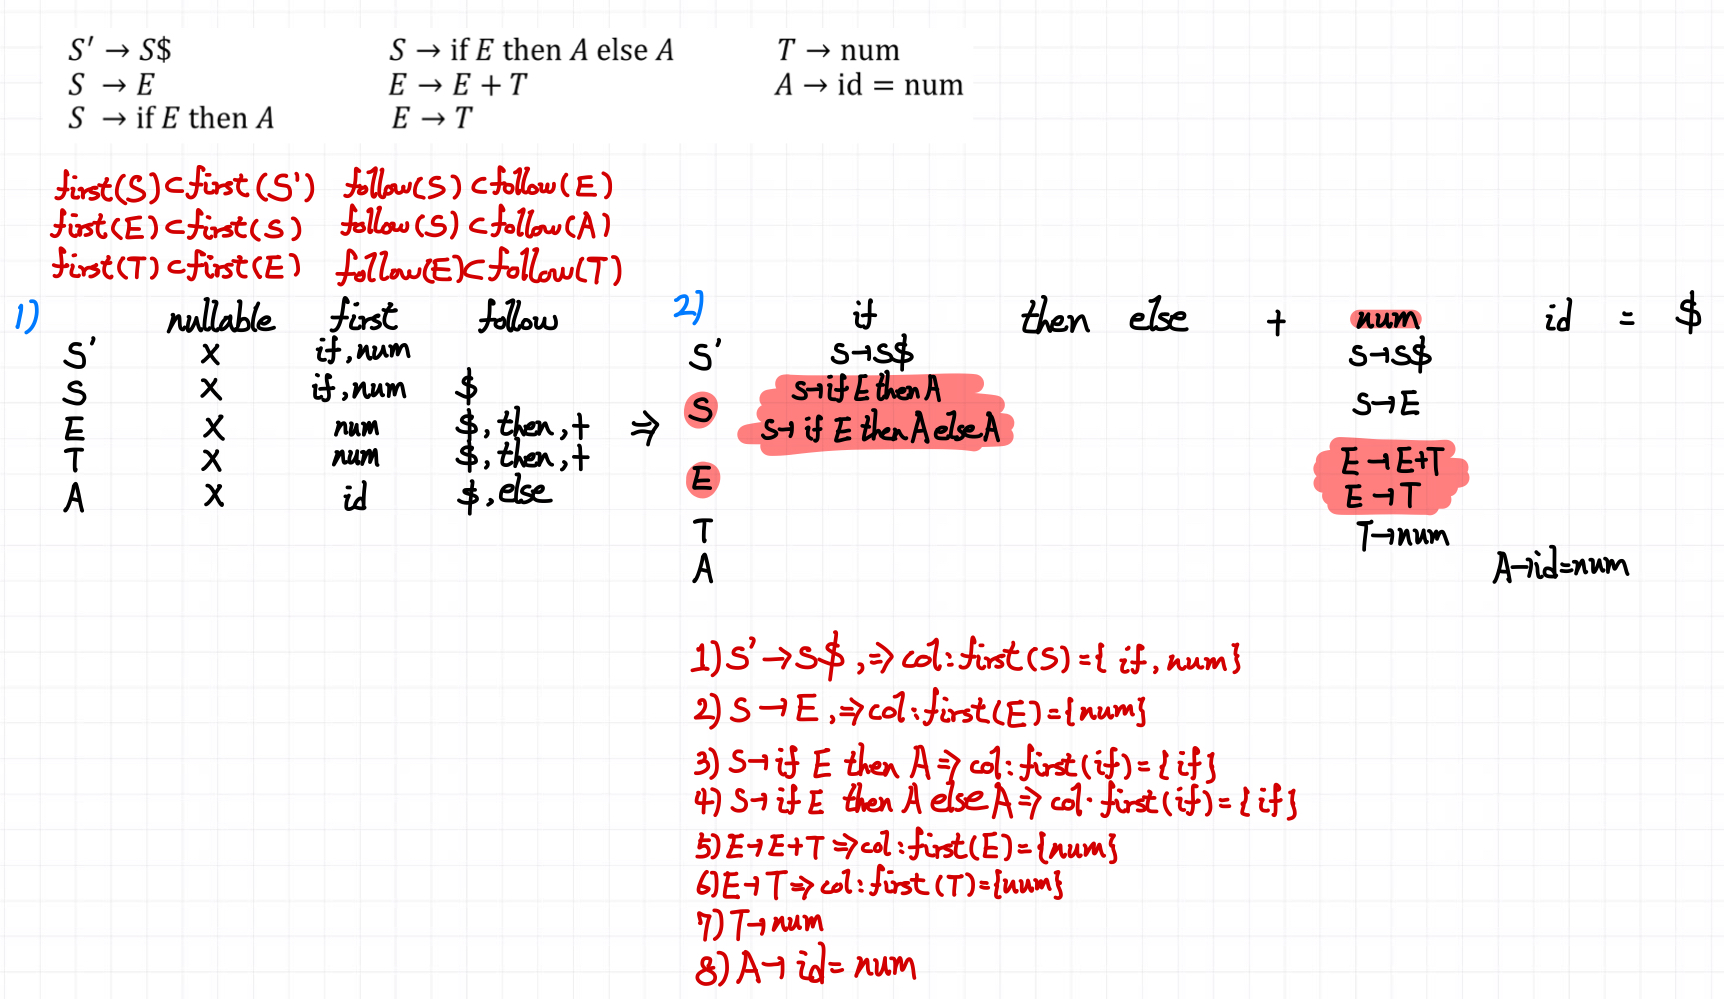 S′ → S$ S → if E then A else A T → num
S → E E → E + T A → id = num
S → if E then A E → T
first(S)⊂first(S') follow(S)⊂follow(E)
first(E)⊂first(S) follow(S)⊂follow(A)
first(T)⊂first(E) follow(E)⊂follow(T)
1) nullable first follow
S' X if,num
S X if,num $
E X num $,then,+
T X num $,then,+
A X id $,else
⇒
2) if then else + num id = $
S' S→S$ S→S$
S S→if E then A S→E
S→if E then A else A
E E→E+T
E→T
T T→num
A A→id=num
1) S'→S$ ,⇒ col:first(S)={if,num}
2) S→E ,⇒col:first(E)={num}
3) S→if E then A⇒ col:first(if)={if}
4) S→if E then A else A⇒ col:first(if)={if}
5) E→E+T⇒col:first(E)={num}
6) E→T⇒col:first(T)={num}
7) T→num
8) A→id=num